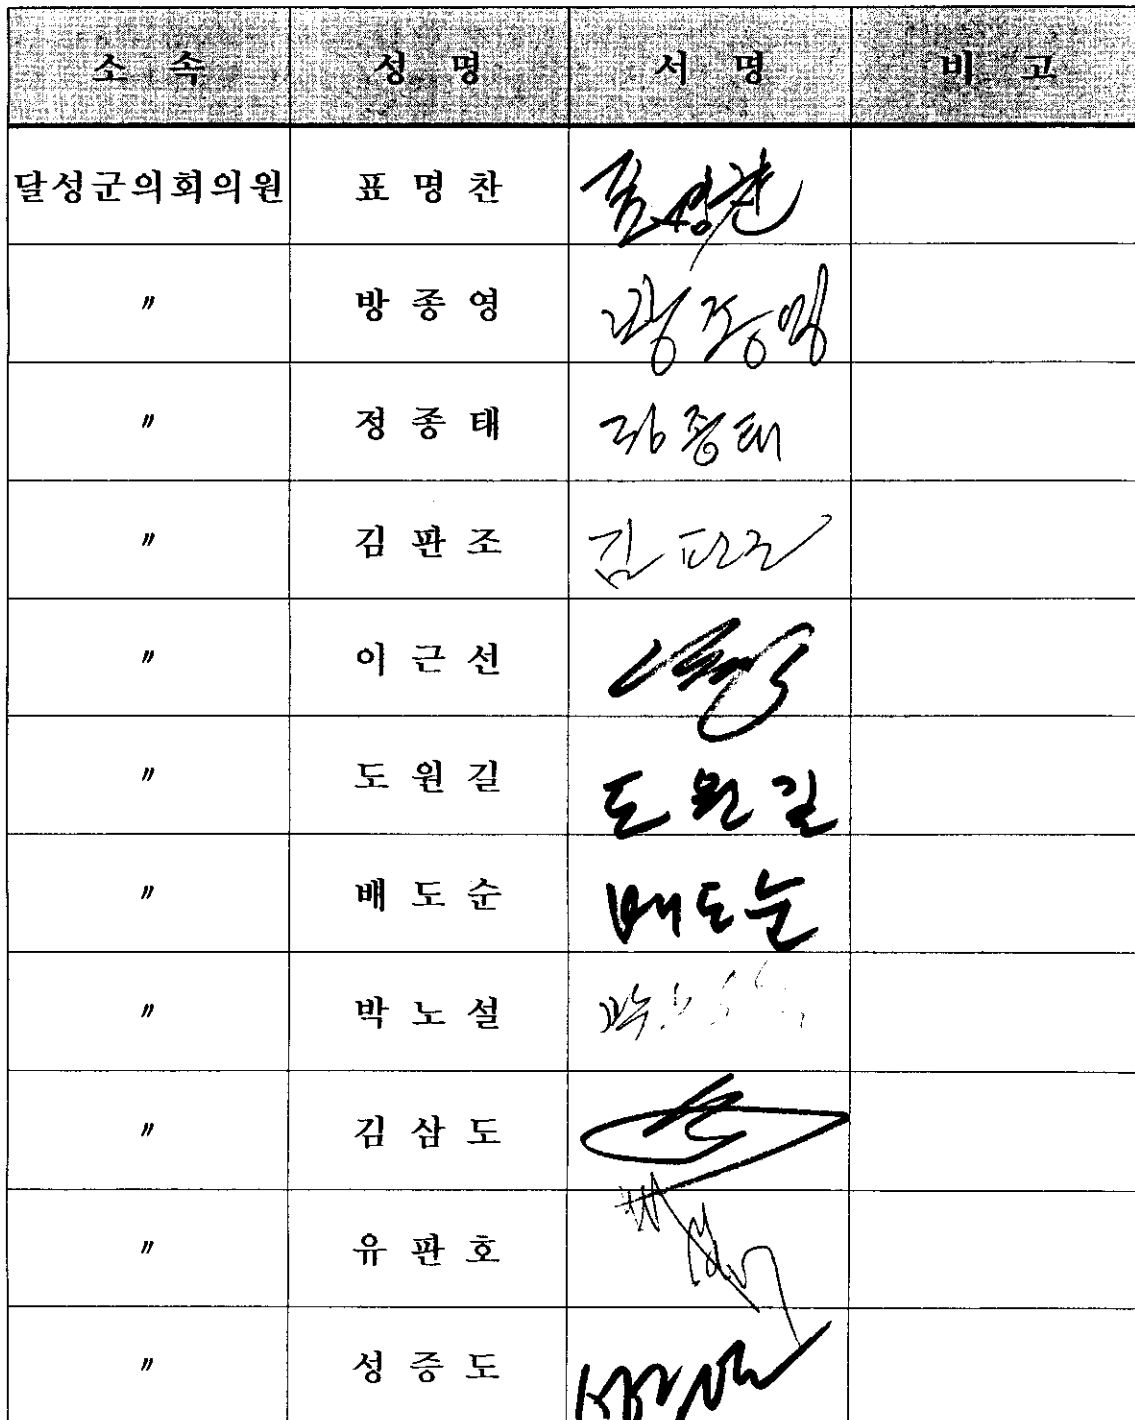 소 속 성 명 서 명 비 고
달성군의회의원 표 명 찬
〃 방 종 영 방종영
〃 정 종 태 정종태
〃 김 판 조 김판조
〃 이 근 선
〃 도 원 길 도원길
〃 배 도 순 배도순
〃 박 노 설
〃 김 삼 도
〃 유 판 호
〃 성 증 도